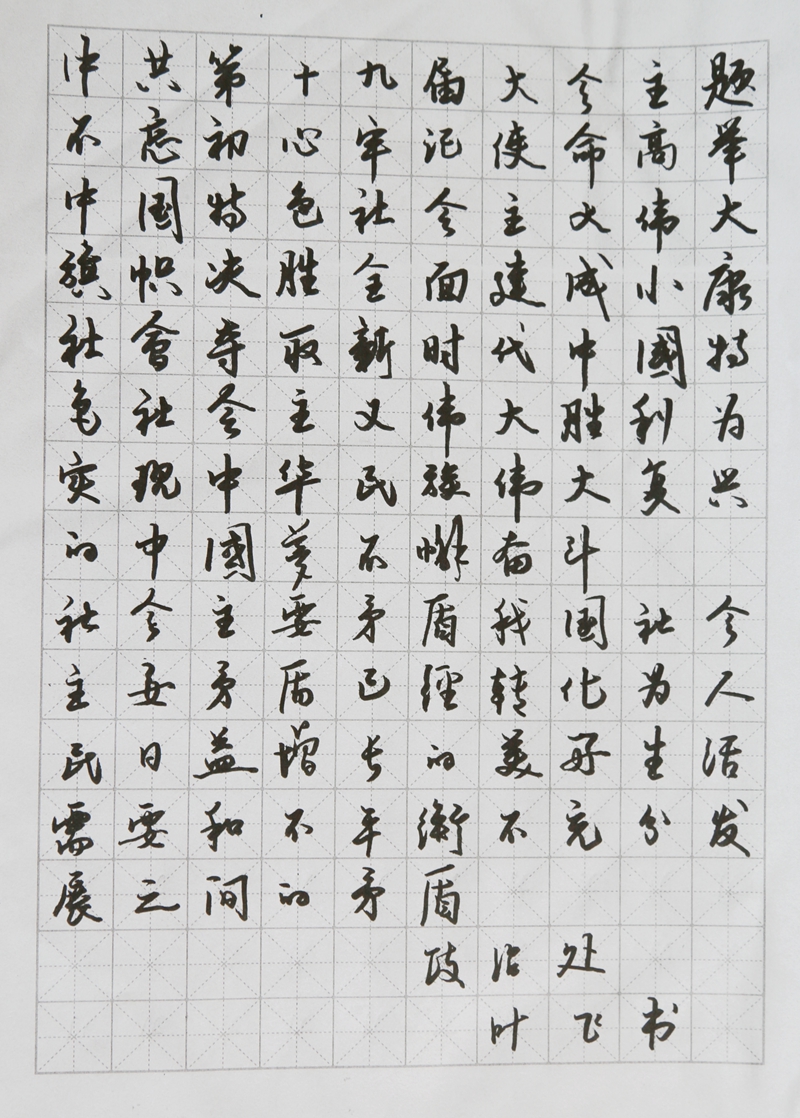 中共第十九届大会主题
不忘初心牢记使命高举
中国特色社会主义伟大
旗帜决胜全面建成小康
社會夺取新时代中國特
色社会主义伟大胜利为
实现中华民族伟大复兴
的中國梦不懈奋斗
社会主要矛盾我国社会
主要矛盾已經转化为人
民日益增长的美好生活
需要和不平衡不充分发
展之间的矛盾
政治处
叶飞书